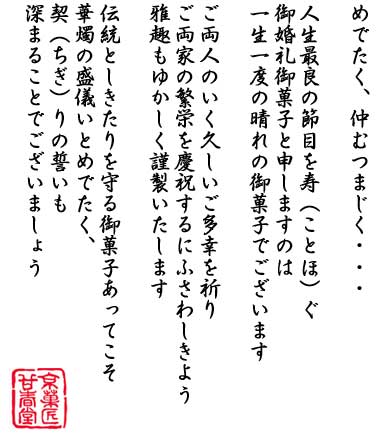 めでたく、仲むつまじく・・・
人生最良の節目を寿（ことほ）ぐ
御婚礼御菓子と申しますのは
一生一度の晴れの御菓子でございます
ご両人のいく久しいご多幸を祈り
ご両家の繁栄を慶祝するにふさわしきよう
雅趣もゆかしく謹製いたします
伝統としきたりを守る御菓子あってこそ
華燭の盛儀いとめでたく、
契（ちぎ）りの誓いも
深まることでございましょう
京菓匠
甘春堂